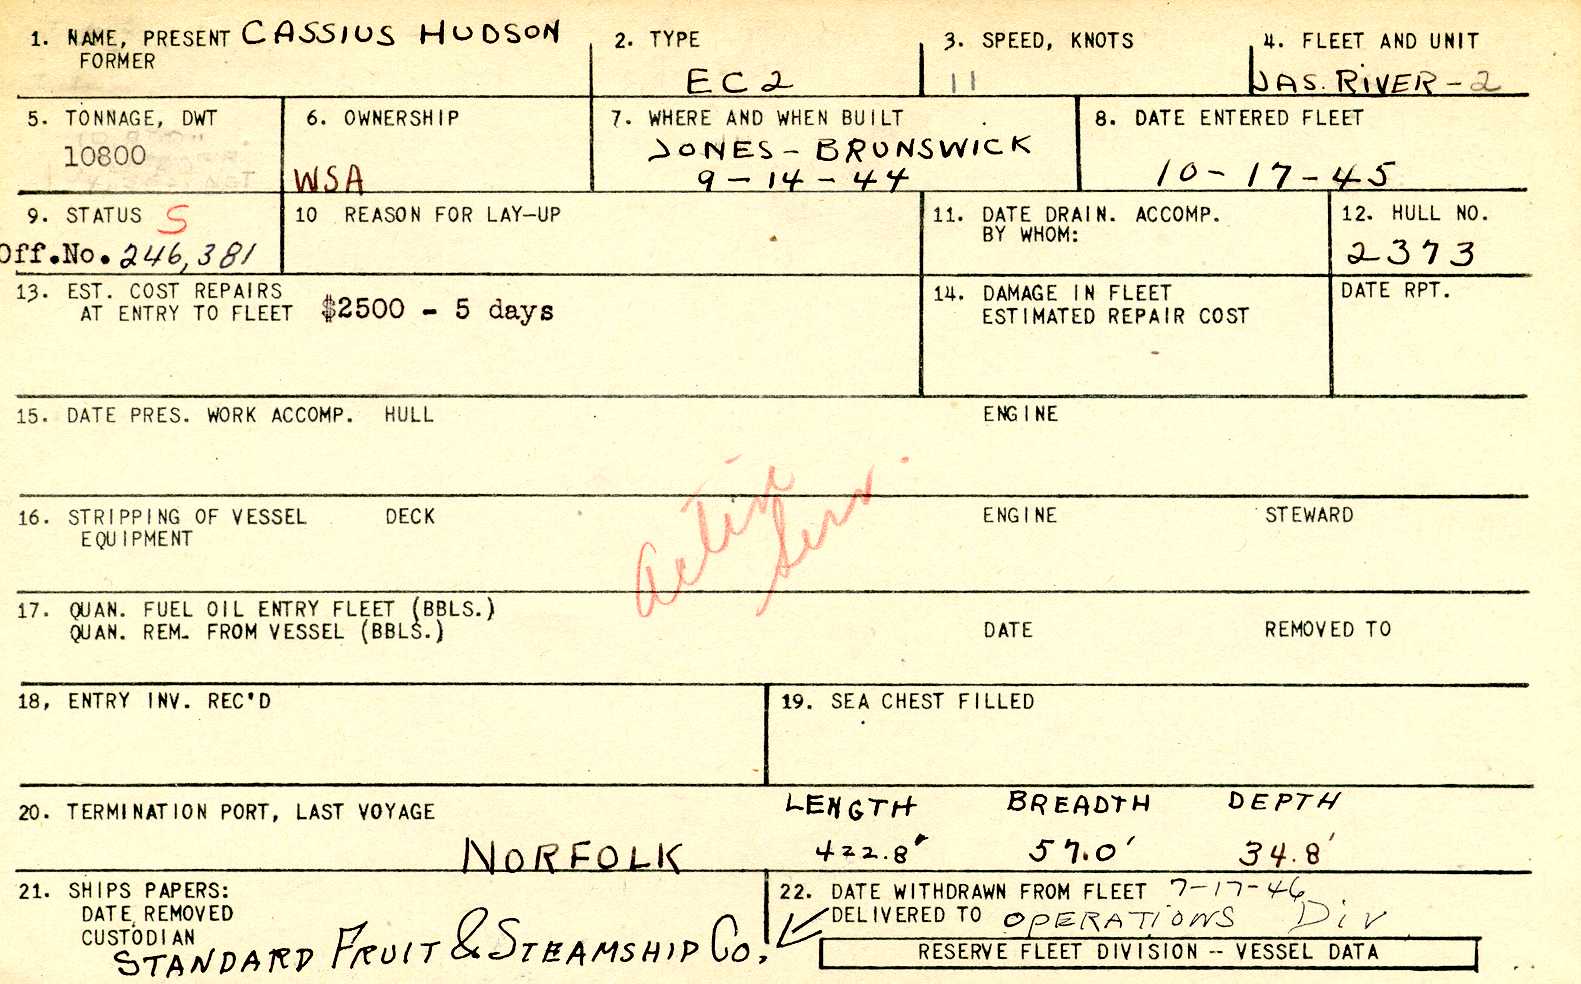 1. NAME, PRESENT CASSIUS HUDSON
FORMER
2. TYPE
EC2
3. SPEED, KNOTS
11
4. FLEET AND UNIT
JAS. RIVER - 2
5. TONNAGE, DWT
10800
6. OWNERSHIP
WSA
7. WHERE AND WHEN BUILT
JONES - BRUNSWICK
9 - 14 - 44
8. DATE ENTERED FLEET
10 - 17 - 45
9. STATUS S
Off.No. 246,381
10 REASON FOR LAY-UP
11. DATE DRAIN. ACCOMP.
BY WHOM:
12. HULL NO.
2373
13. EST. COST REPAIRS
AT ENTRY TO FLEET $2500 - 5 days
14. DAMAGE IN FLEET
ESTIMATED REPAIR COST
DATE RPT.
15. DATE PRES. WORK ACCOMP. HULL
ENGINE
Serv.
16. STRIPPING OF VESSEL DECK
EQUIPMENT
ENGINE
STEWARD
17. QUAN. FUEL OIL ENTRY FLEET (BBLS.)
QUAN. REM. FROM VESSEL (BBLS.)
DATE
REMOVED TO
18, ENTRY INV. REC'D
19. SEA CHEST FILLED
20. TERMINATION PORT, LAST VOYAGE
NORFOLK
LENGTH BREADTH DEPTH
422.8' 57.0' 34.8'
21. SHIPS PAPERS:
DATE REMOVED
CUSTODIAN
STANDARD FRUIT & STEAMSHIP CO.
22. DATE WITHDRAWN FROM FLEET 7-17-46
DELIVERED TO OPERATIONS Div
RESERVE FLEET DIVISION -- VESSEL DATA